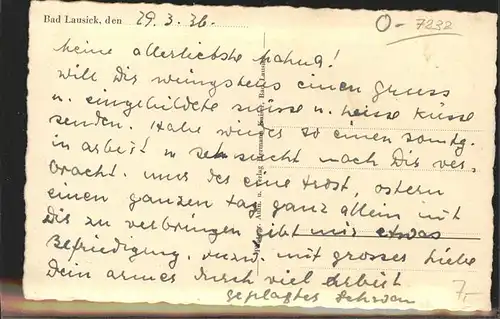 Bad Lausick, den 29.3.36.
O-7232
Meine allerliebste
will Dir wenigstens einen Gruss
u. eingebildete süsse u. heisse Küsse
senden. Habe wieder so einen Sontg.
in arbeit u sehnsucht nach Dir ver-
bracht. nur der eine trost, ostern
einen ganzen tag ganz allein mit
Dir zu verbringen gibt mir etwas
Befriedigung. mit grosser Liebe
Dein armes durch viel arbeit
geplagtes
7,-